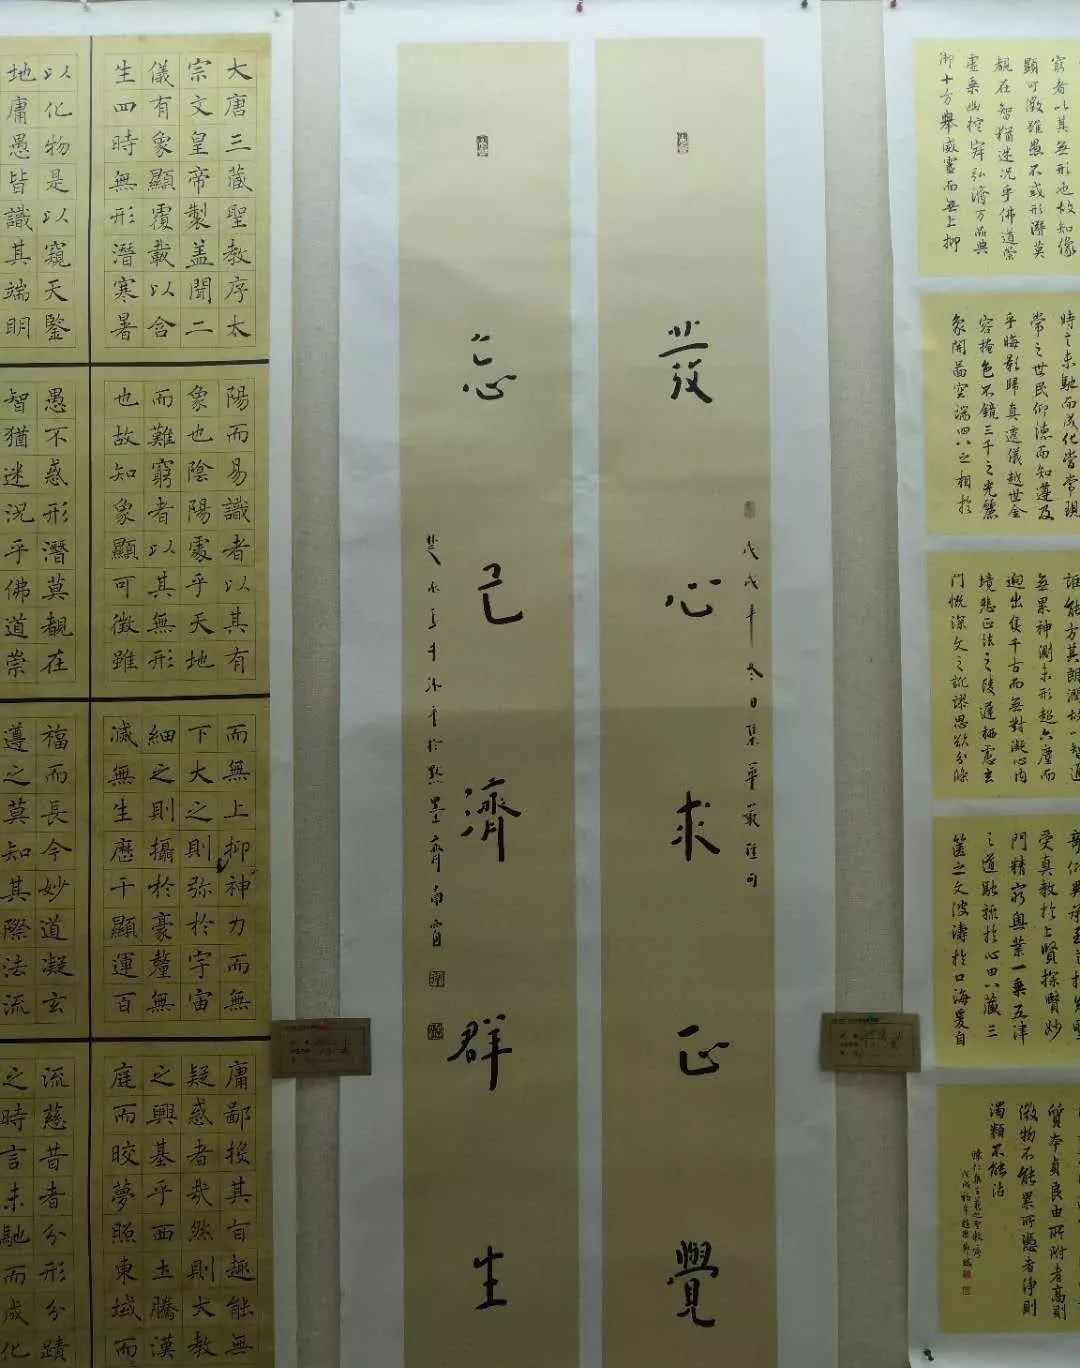 大唐三藏聖教序太
宗文皇帝製盖聞二
儀有象顯覆載以含
生四時無形潛寒暑
以化物是以窺天鑒
地庸愚皆識其端明
陽而易識者以其有
象也陰陽處乎天地
而難窮者以其無形
也故知象顯可徵雖
愚不惑形潛莫覩在
智猶迷況乎佛道崇
而無上抑神力而無
下大之則弥於宇宙
細之則攝於豪釐無
滅無生歷千顯運百
福而長今妙道凝玄
遵之莫知其際法流
庸鄙投其旨趣能無
疑惑者哉然則大教
之興基乎西土騰漢
庭而皎夢照東域而
流慈昔者分形分蹟
之時言未馳而成化
發心求正覺
戊戌年冬日集華嚴經句
忘己濟群生
於點墨齋南窗
窮者以其無形也故知像
顯可徵雖愚不惑形潛莫
覩在智猶迷況乎佛道崇
虛乘幽控寂弘濟万品典
御十方舉威靈而無上抑
時言未馳而成化當常現
常之世民仰德而知遵及
乎晦影歸真遷儀越世金
容掩色不鏡三千之光麗
象開圖空端四八之相於
誰能方其朗潤故以智通
無累神測未形超六塵而
迥出隻千古而無對凝心內
境悲正法之陵遲栖慮玄
門慨深文之訛謬思欲分條
受真教於上賢探賾妙
門精窮奧業一乘五津
之道馳驟於心田八藏三
篋之文波濤於口海爰自
質本貞良由所附者高則
微物不能累所憑者淨則
濁類不能沾